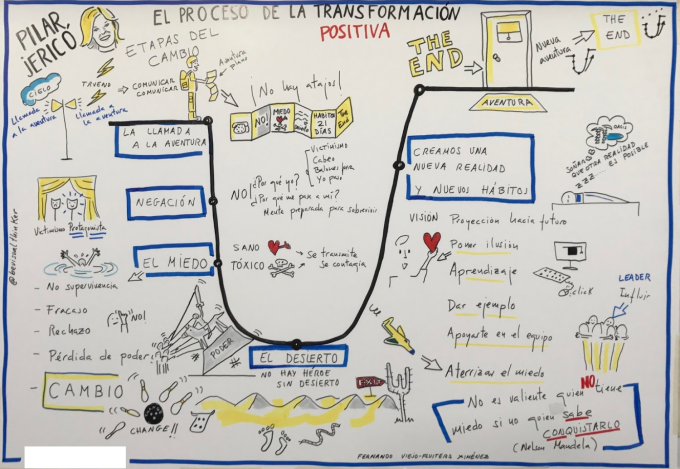 PILAR JERICÓ
EL PROCESO DE LA TRANSFORMACIÓN
POSITIVA
ETAPAS DEL
CAMBIO
CIELO
TRUENO
Llamada
a la aventura
Llamada a
la aventura
COMUNICAR
COMUNICAR
Aventura
¡No hay atajos!
NO!
MEDO
HÁBITOS
21
DÍAS
The End
THE
END
AVENTURA
Nueva
aventura
THE
END
LA LLAMADA
A LA AVENTURA
NEGACIÓN
EL MIEDO
EL DESIERTO
NO HAY HÉROE
SIN DESIERTO
CREAMOS UNA
NUEVA REALIDAD
Y NUEVOS HÁBITOS
NO!
¿Por qué yo?
Victimismo
Yo puro
¿Por qué me pasa a mí?
Mente preparada para sobrevivir
SANO
TÓXICO
Se transmite
Se contagia
Victimismo Protagonista
@bevisualthinker
- No supervivencia
- Fracaso
- Rechazo
- Pérdida de poder
NO!
PODER
- CAMBIO
CHANGE!!
EXIT
SOÑAR
QUE OTRA REALIDAD
ES POSIBLE
ZZZ
VISIÓN
Proyección hacia futuro
Poner ilusión
Aprendizaje
Dar ejemplo
Apoyarte en el equipo
Aterrizar el miedo
click
LEADER
Influir
No es valiente quien NO tiene
miedo si no quien sabe
CONQUISTARLO
(Nelson Mandela)
FERNANDO VIEJO-FLUITERS XIMÉNEZ